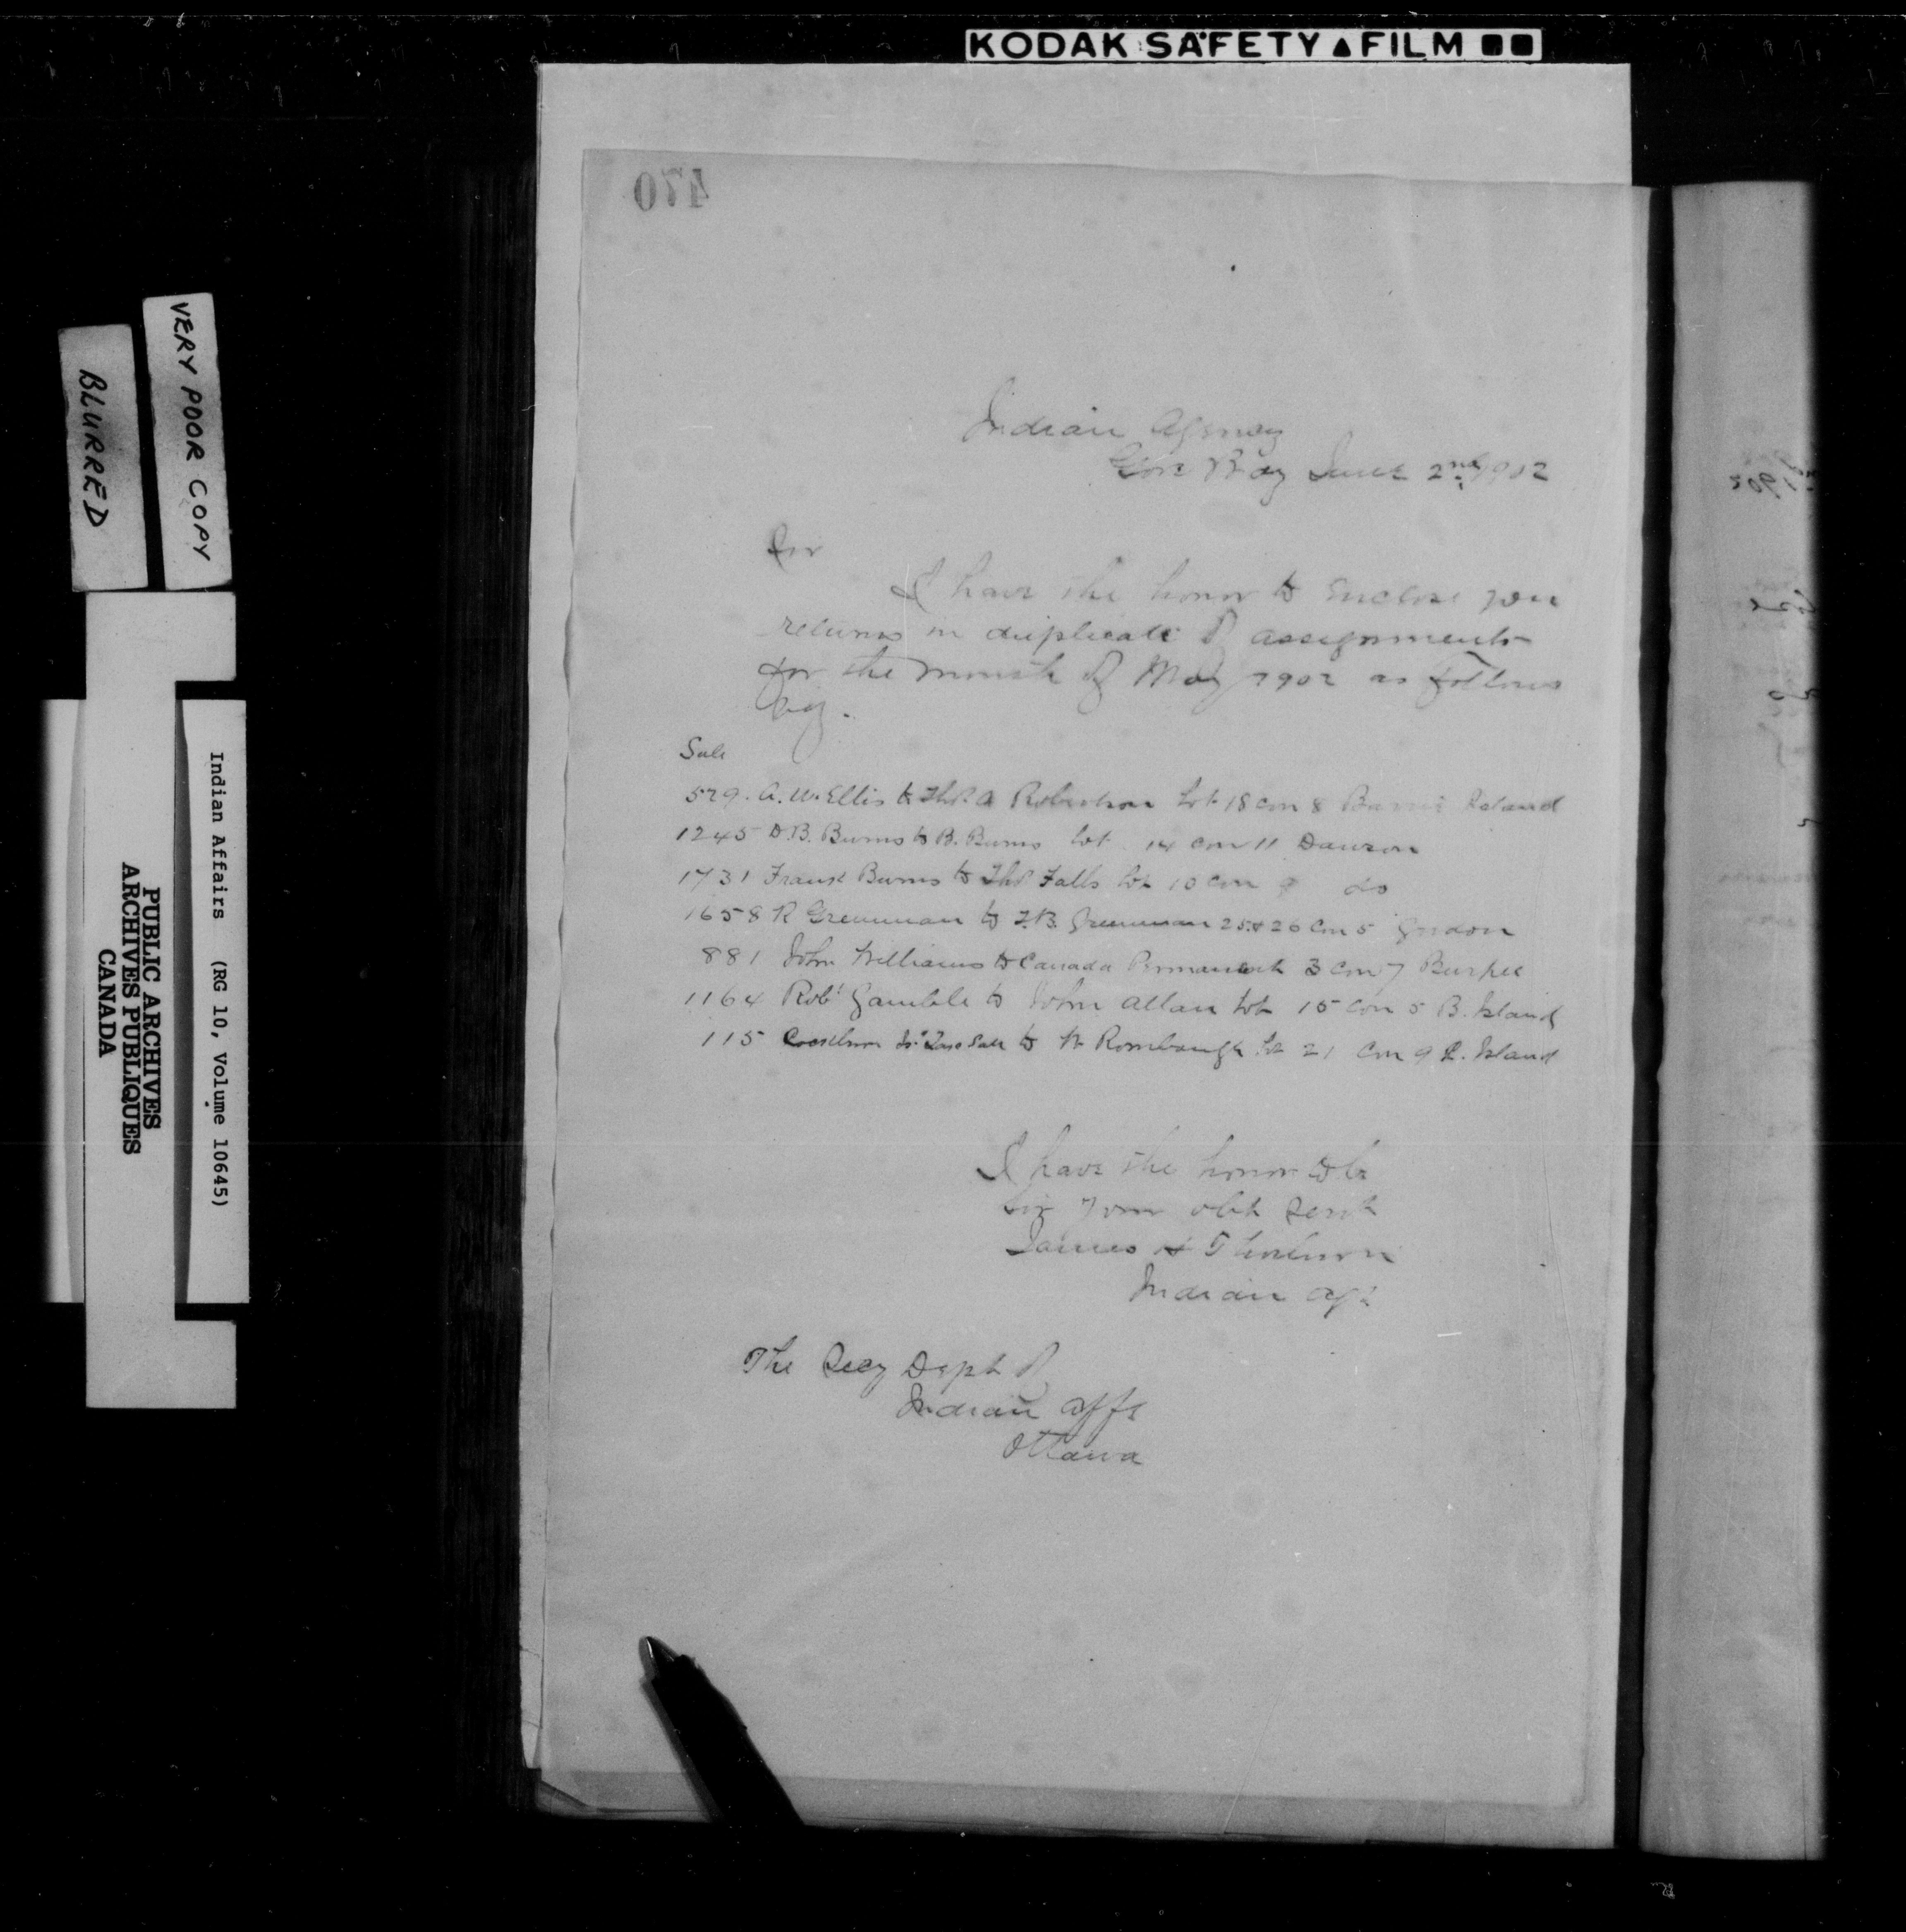 KODAK SAFETY FILM
470
Indian Agency
Gore Bay June 2nd 1902
Sir
I have the honor to enclose you
returns in duplicate of assignments
for the month of May 1902 as follows
viz.
Sale
529. A. W. Ellis to Thos. A Robertson Lot 18 con 8 Barrie Island
1245 D.B. Burns to B. Burns Lot 14 con 11 Dawson
1731 Frank Burns to Thos Falls Lot 10 con do
1658 R Greenman to F.B. Greenman 25 & 26 Con 5 Gordon
881 John Williams to Canada Permanent 3 Con 7 Burpee
1164 Robt Gamble to John Allan Lot 15 con 5 B. Island
115 to W Rombough Lot 21 Con 9 Island
I have the honor to be
Sir Your obt Servt
James H Thorburn
Indian Agt
The Secy Dept of
Indian Affs
Ottawa
VERY POOR COPY
BLURRED
Indian Affairs (RG 10, Volume 10645)
PUBLIC ARCHIVES
ARCHIVES PUBLIQUES
CANADA